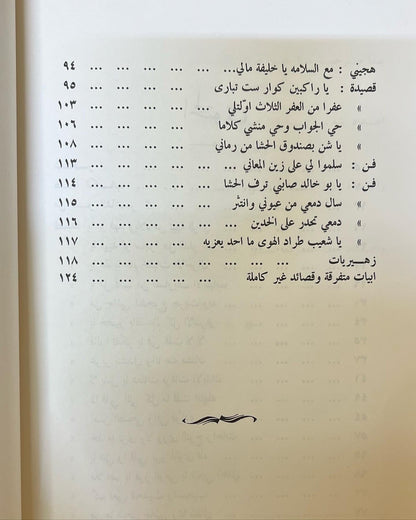 هجيني : مع السلامه يا خليفة مالي... ... ... ... ... ٩٤
قصيدة : يا راكبين كوار ست تبارى ... ... ... ... ٩٥
» عفرا من العفر الثلاث اولتلي ... ... ... ... ١٠٣
» حي الجواب وحي منشي كلاما ... ... ... ... ١٠٦
» يا شن بصندوق الحشا من رماني ... ... ... ١٠٨
فـن : سلموا لي على زين المعاني ... ... ... ... ... ١١٣
فـن : يا بو خالد صابني ترف الحشا ... ... ... ... ١١٤
» سال دمعي من عيوني وانتثر ... ... ... ... ١١٥
» دمعي تحدر على الخدين ... ... ... ... ... ١١٦
» يا شعيب طراد الهوى ما احد يعزيه ... ... ... ١١٧
زهـــيريات ... ... ... ... ... ... ... ١١٨
ابيات متفرقة وقصائد غير كاملة ... ... ... ... ١٢٤